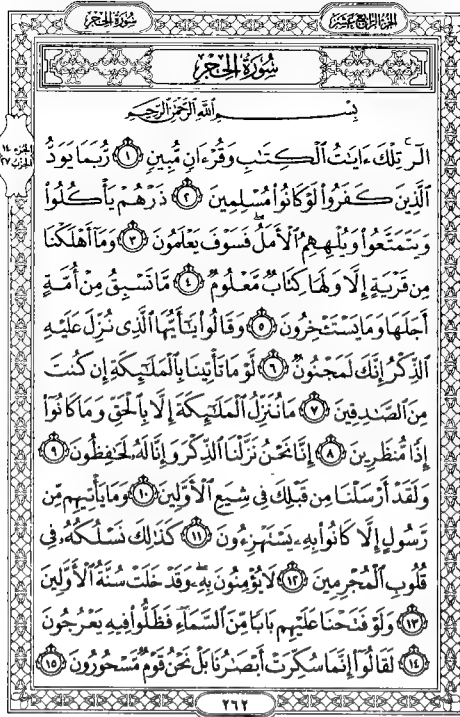 الجزء الرابع عشر
سورة الحجر
سُورَةُ الحِجْرِ
بِسْمِ اللَّهِ الرَّحْمَٰنِ الرَّحِيمِ
الٓر ۚ تِلْكَ ءَايَٰتُ ٱلْكِتَٰبِ وَقُرْءَانٍ مُّبِينٍ ١ رُّبَمَا يَوَدُّ
ٱلَّذِينَ كَفَرُوا۟ لَوْ كَانُوا۟ مُسْلِمِينَ ٢ ذَرْهُمْ يَأْكُلُوا۟
وَيَتَمَتَّعُوا۟ وَيُلْهِهِمُ ٱلْأَمَلُ ۖ فَسَوْفَ يَعْلَمُونَ ٣ وَمَآ أَهْلَكْنَا
مِن قَرْيَةٍ إِلَّا وَلَهَا كِتَابٌ مَّعْلُومٌ ٤ مَّا تَسْبِقُ مِنْ أُمَّةٍ
أَجَلَهَا وَمَا يَسْتَـْٔخِرُونَ ٥ وَقَالُوا۟ يَٰٓأَيُّهَا ٱلَّذِى نُزِّلَ عَلَيْهِ
ٱلذِّكْرُ إِنَّكَ لَمَجْنُونٌ ٦ لَّوْ مَا تَأْتِينَا بِٱلْمَلَٰٓئِكَةِ إِن كُنتَ
مِنَ ٱلصَّٰدِقِينَ ٧ مَا نُنَزِّلُ ٱلْمَلَٰٓئِكَةَ إِلَّا بِٱلْحَقِّ وَمَا كَانُوٓا۟
إِذًا مُّنظَرِينَ ٨ إِنَّا نَحْنُ نَزَّلْنَا ٱلذِّكْرَ وَإِنَّا لَهُۥ لَحَٰفِظُونَ ٩
وَلَقَدْ أَرْسَلْنَا مِن قَبْلِكَ فِى شِيَعِ ٱلْأَوَّلِينَ ١٠ وَمَا يَأْتِيهِم مِّن
رَّسُولٍ إِلَّا كَانُوا۟ بِهِۦ يَسْتَهْزِءُونَ ١١ كَذَٰلِكَ نَسْلُكُهُۥ فِى
قُلُوبِ ٱلْمُجْرِمِينَ ١٢ لَا يُؤْمِنُونَ بِهِۦ ۖ وَقَدْ خَلَتْ سُنَّةُ ٱلْأَوَّلِينَ
١٣ وَلَوْ فَتَحْنَا عَلَيْهِم بَابًا مِّنَ ٱلسَّمَآءِ فَظَلُّوا۟ فِيهِ يَعْرُجُونَ
١٤ لَقَالُوٓا۟ إِنَّمَا سُكِّرَتْ أَبْصَٰرُنَا بَلْ نَحْنُ قَوْمٌ مَّسْحُورُونَ ١٥
الجزء ١٤
الحزب ٢٧
٢٦٢